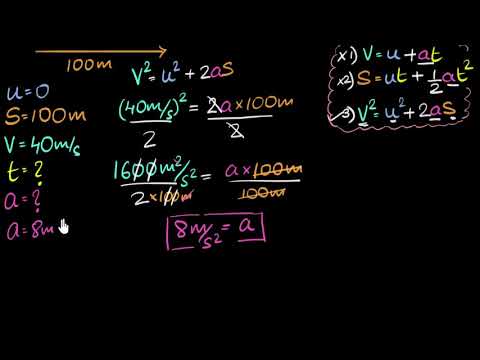 100m
u=0
S=100m
V=40m/s
t=?
a=?
a=8m
V²=u²+2aS
(40m/s)²/2 = 2a×100m/2
1600m²/s²/2×100m = a×100m/100m
8m/s²=a
×1) V=u+at
×2) S=ut+1/2at²
✓3) V²=u²+2aS